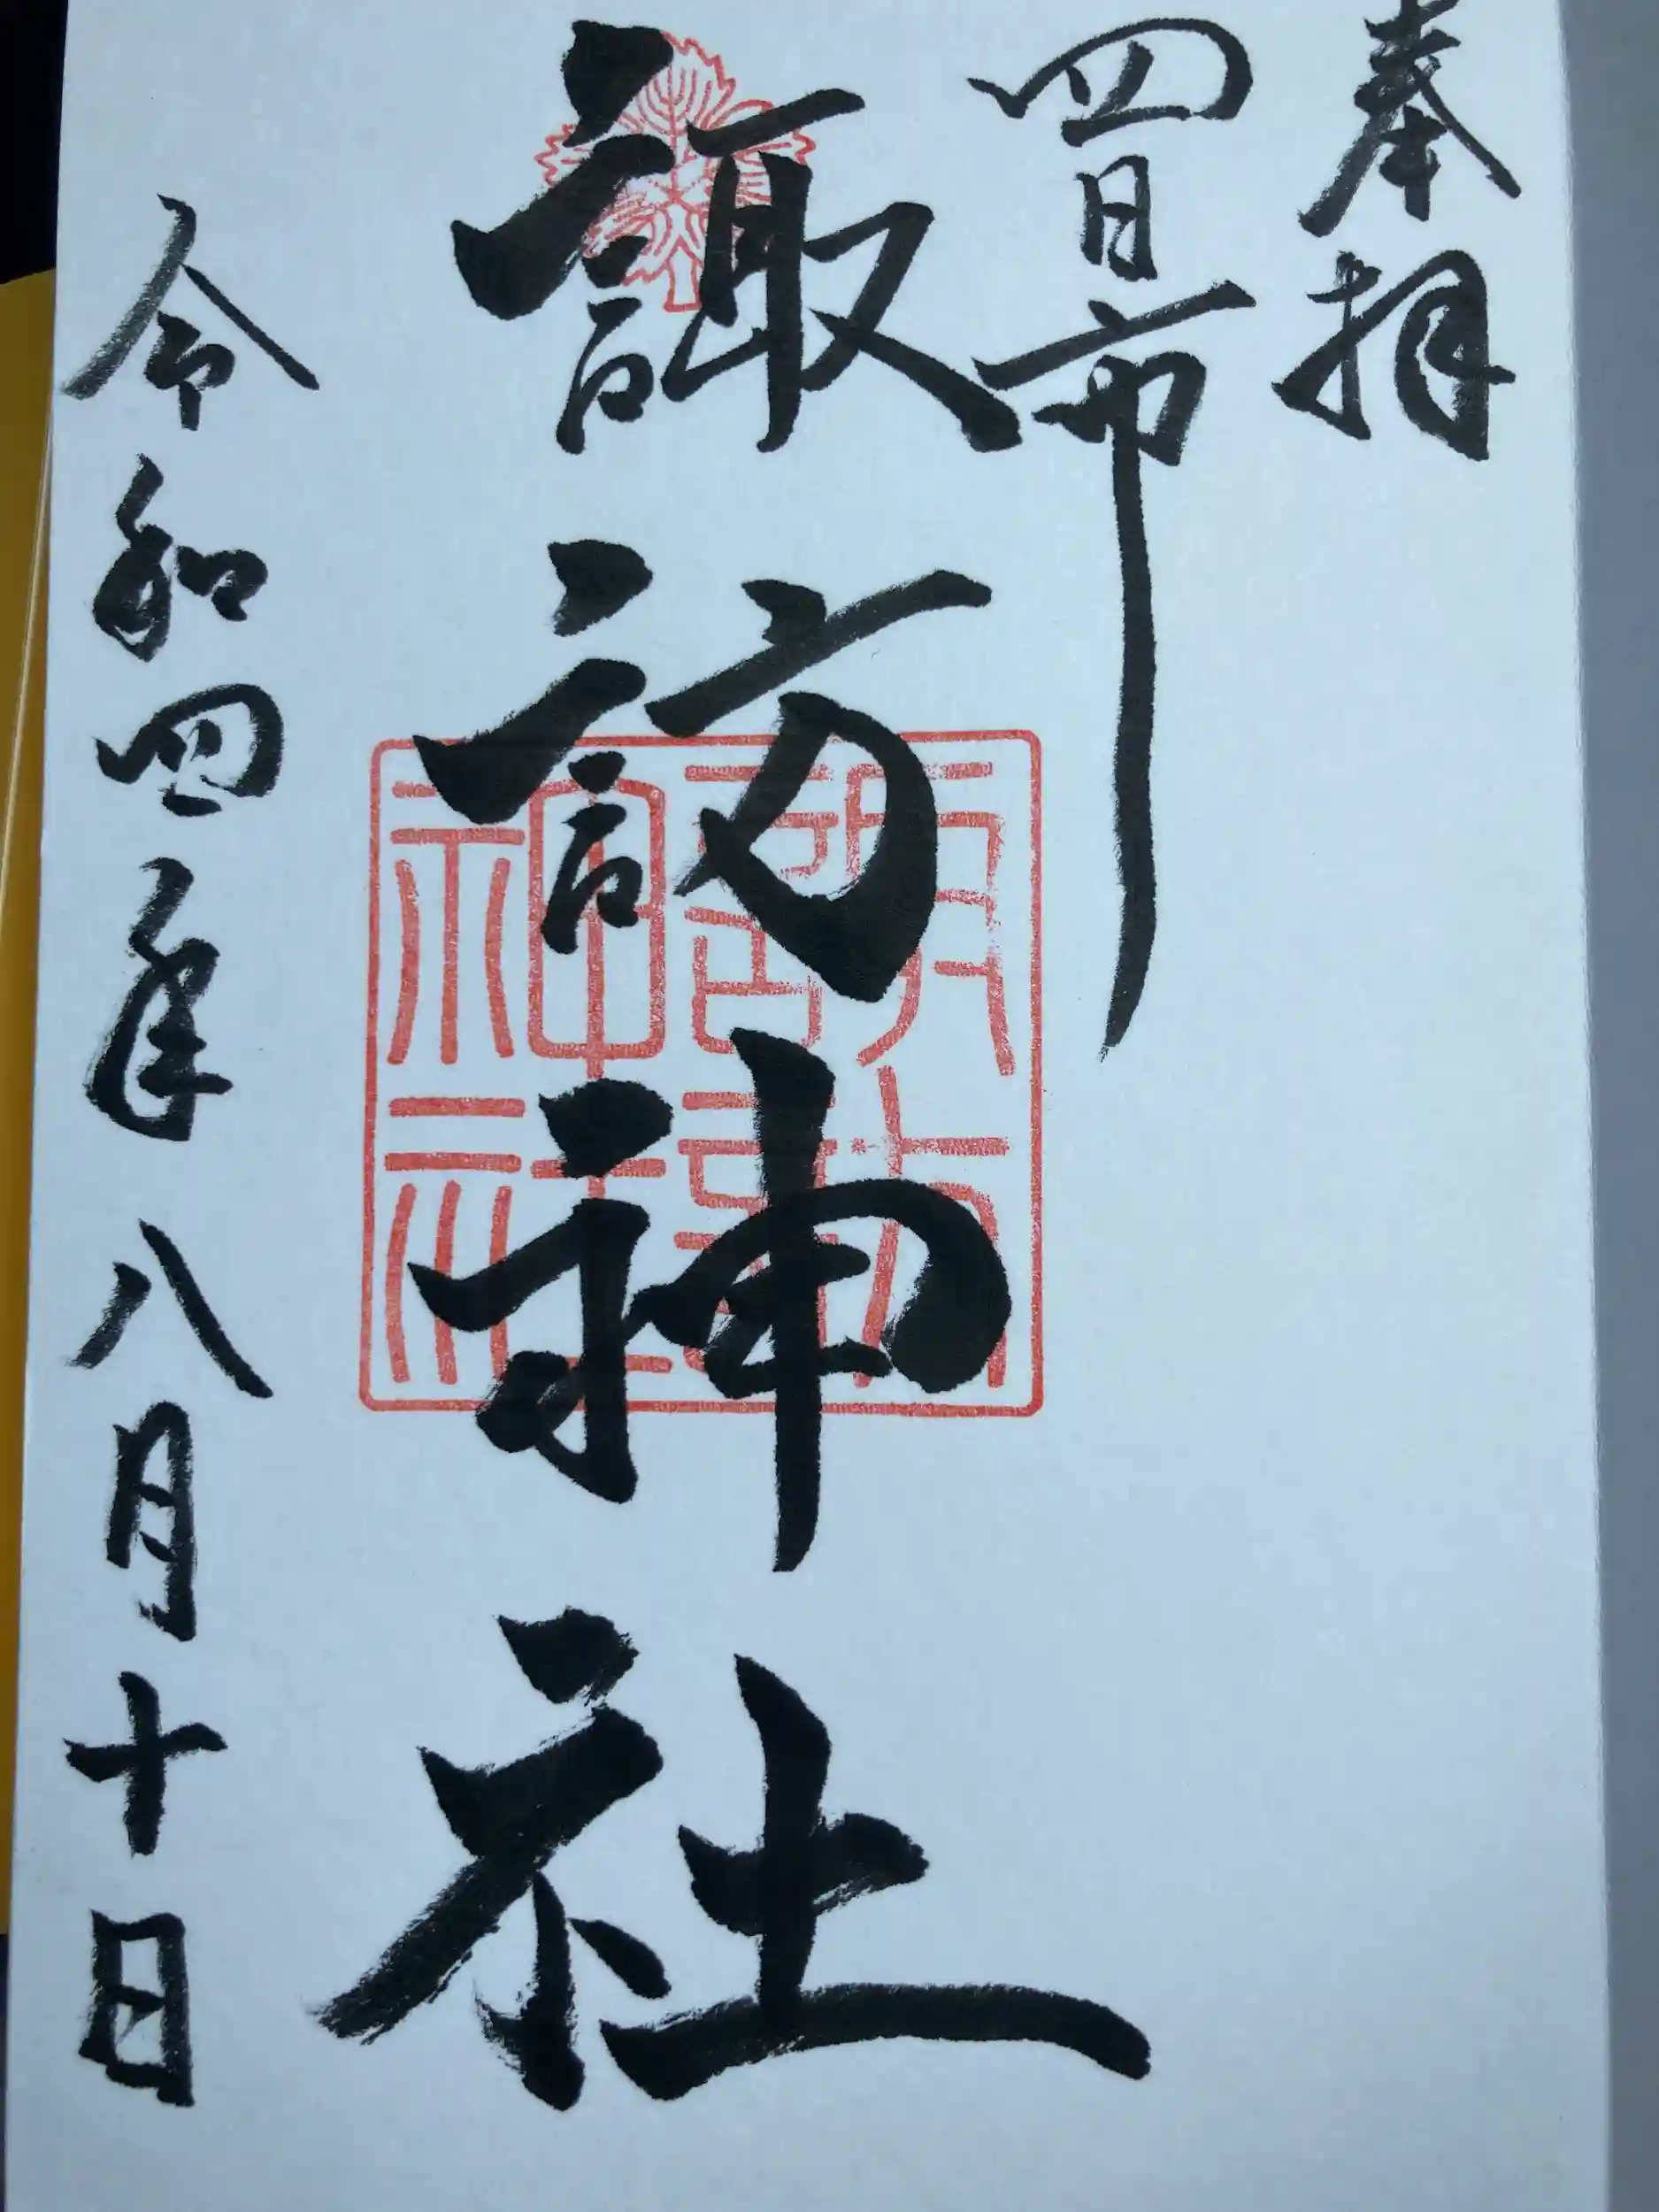 奉拝
四日市
諏訪神社
諏訪神社
令和四年八月十日